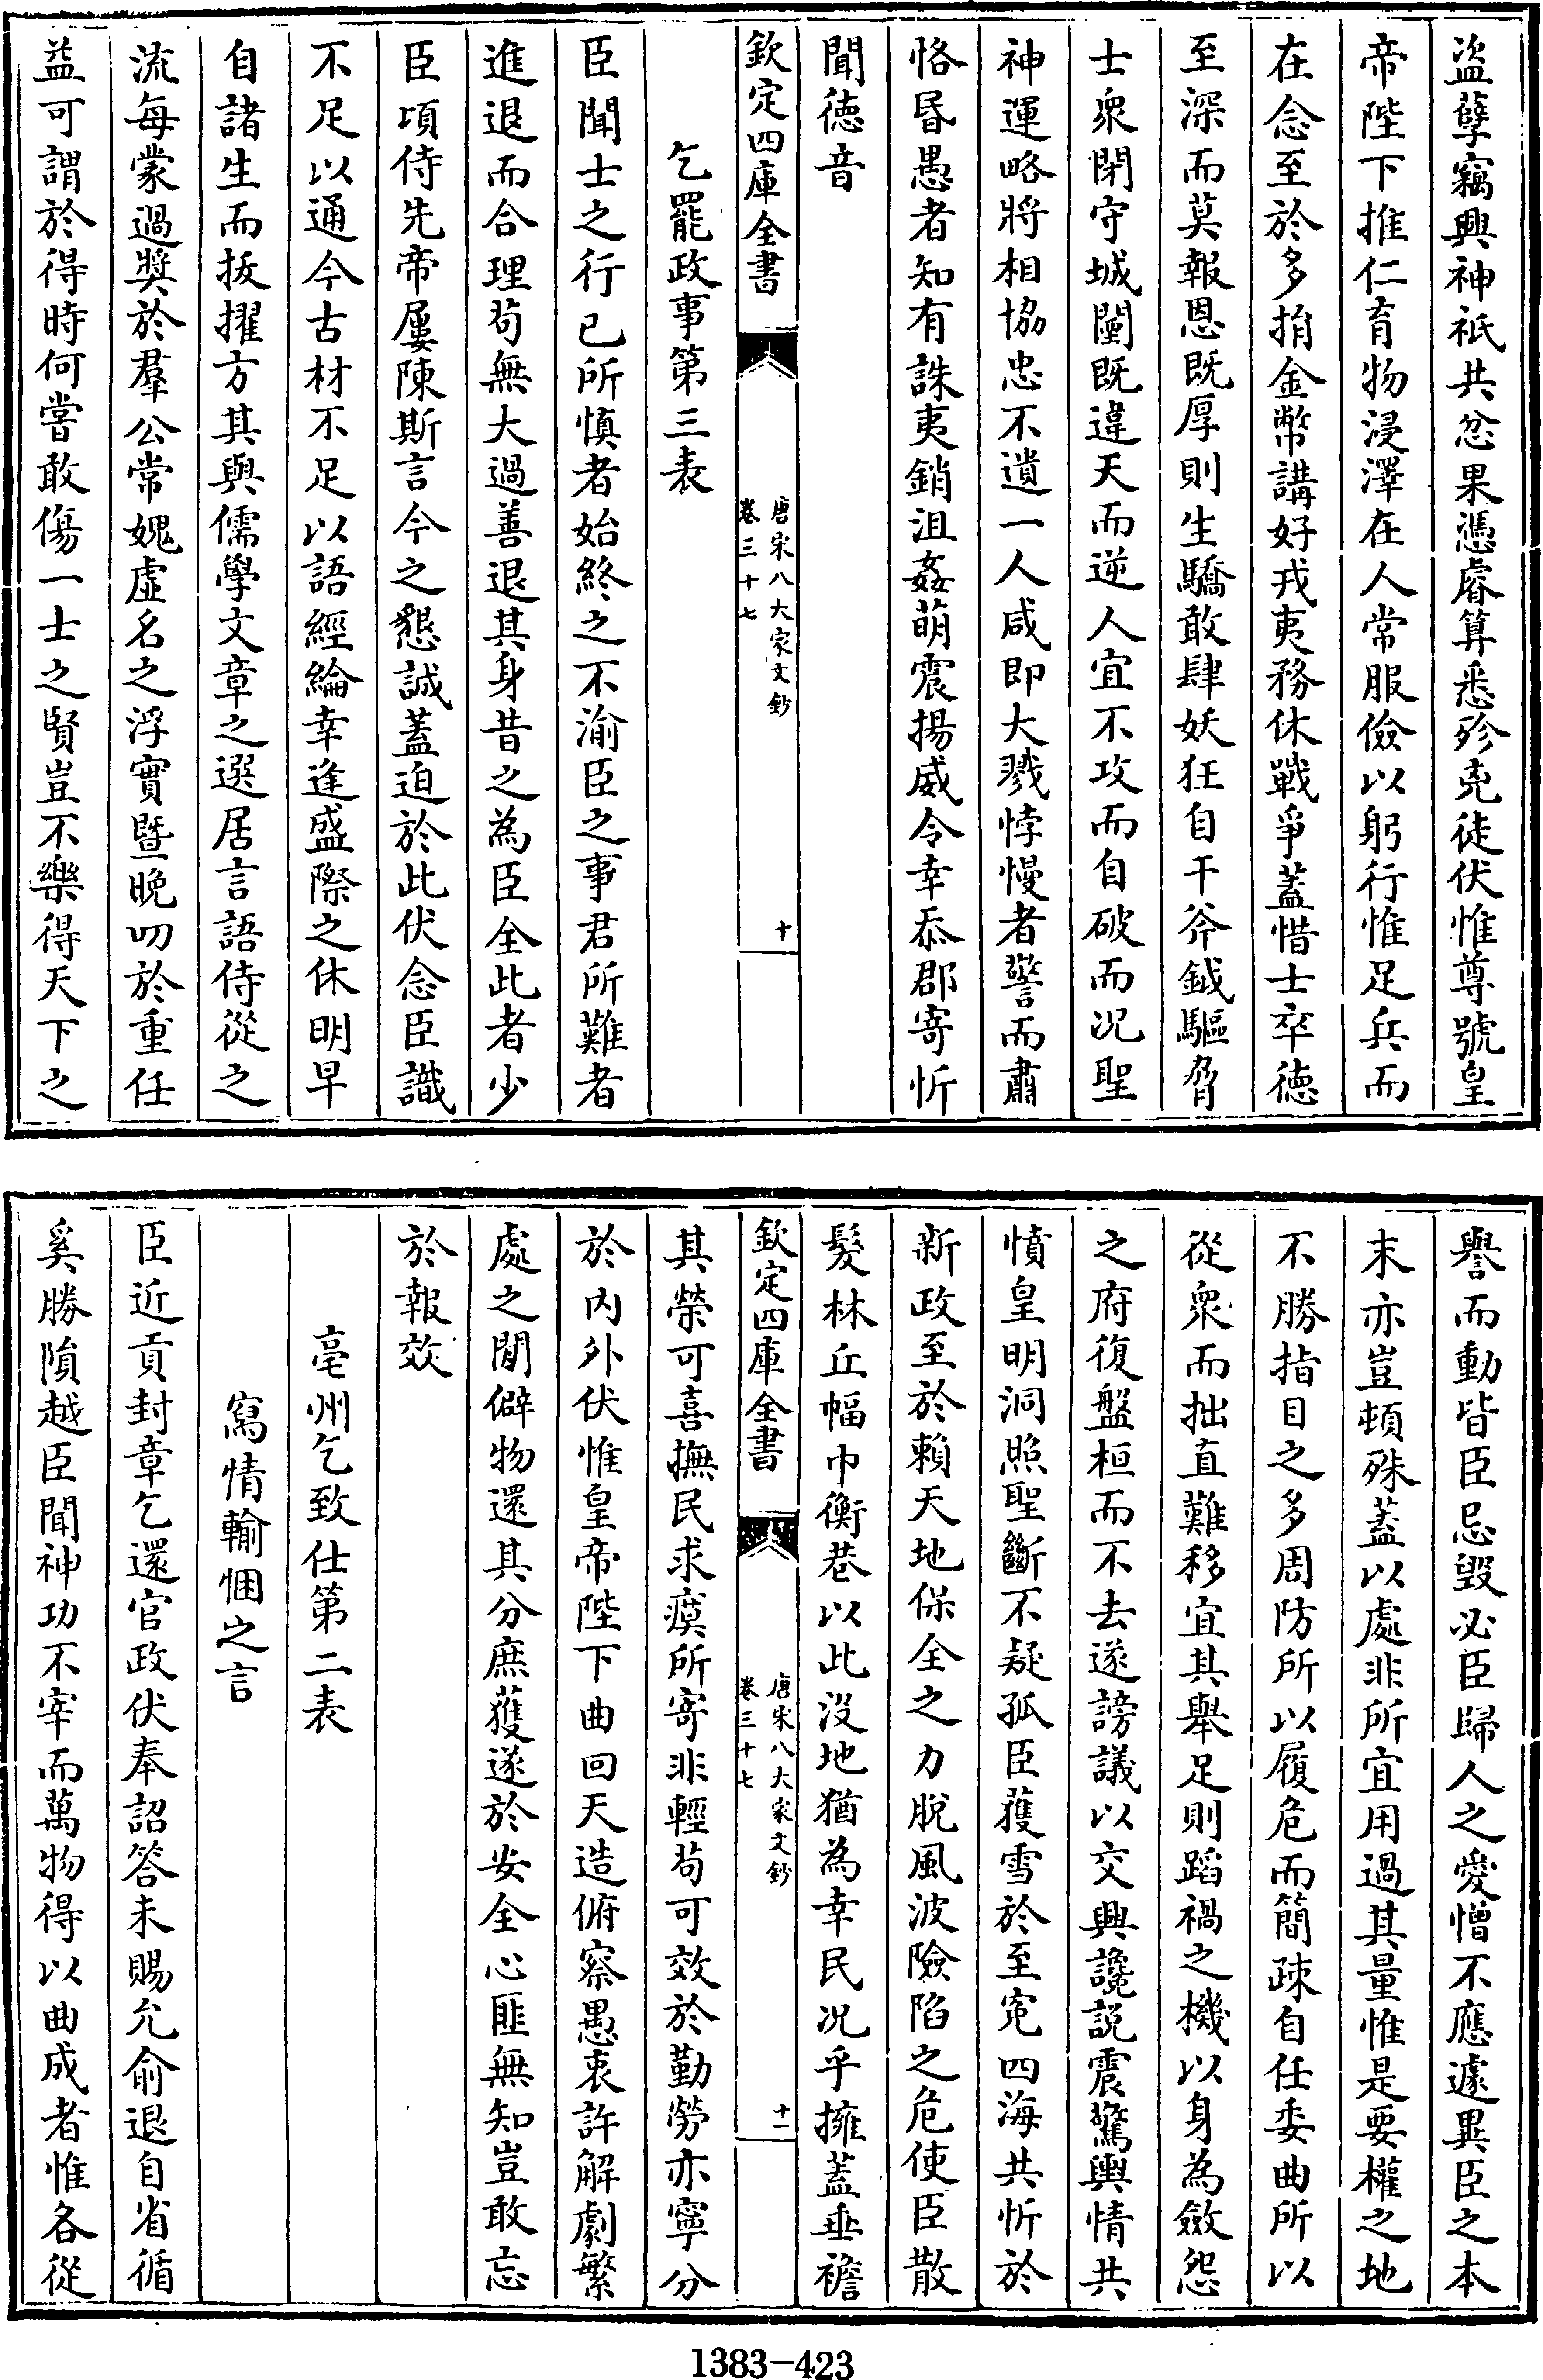 盜孽竊興神祇共忿果憑睿算悉殄兇徒伏惟尊號皇
帝陛下推仁育物浸澤在人常服儉以躬行惟足兵而
在念至於多捐金幣講好戎夷務休戰爭蓋惜士卒德
至深而莫報恩既厚則生驕敢肆妖狂自干斧鉞驅脅
士衆閉守城闉既違天而逆人宜不攻而自破而况聖
神運略將相協忠不遺一人咸即大戮悖慢者詟而肅
恪昏愚者知有誅夷銷沮姦萌震揚威令幸忝郡寄忻
聞德音
欽定四庫全書
唐宋八大家文鈔
卷三十七
十
乞罷政事第三表
臣聞士之行已所慎者始終之不渝臣之事君所難者
進退而合理苟無大過善退其身昔之為臣全此者少
臣頃侍先帝屢陳斯言今之懇誠蓋迫於此伏念臣識
不足以通今古材不足以語經綸幸逢盛際之休明早
自諸生而拔擢方其與儒學文章之選居言語侍從之
流每蒙過奬於羣公常媿虛名之浮實暨晚叨於重任
益可謂於得時何嘗敢傷一士之賢豈不樂得天下之
譽而動皆臣忌毀必臣歸人之愛憎不應遽異臣之本
末亦豈頓殊蓋以處非所宜用過其量惟是要權之地
不勝指目之多周防所以履危而簡疎自任委曲所以
從衆而拙直難移宜其舉足則蹈禍之機以身為斂怨
之府復盤桓而不去遂謗議以交興讒説震驚輿情共
憤皇明洞照聖斷不疑孤臣獲雪於至寃四海共忻於
新政至於賴天地保全之力脫風波險陷之危使臣散
髮林丘幅巾衡巷以此沒地猶為幸民况乎擁蓋垂襜
欽定四庫全書
唐宋八大家文鈔
卷三十七
十一
其榮可喜撫民求瘼所寄非輕苟可效於勤勞亦寧分
於内外伏惟皇帝陛下曲回天造俯察愚衷許解劇繁
處之閒僻物還其分庶獲遂於安全心匪無知豈敢忘
於報效
亳州乞致仕第二表
寫情輸悃之言
臣近貢封章乞還官政伏奉詔答未賜允俞退自省循
奚勝隕越臣聞神功不宰而萬物得以曲成者惟各從
1383-423